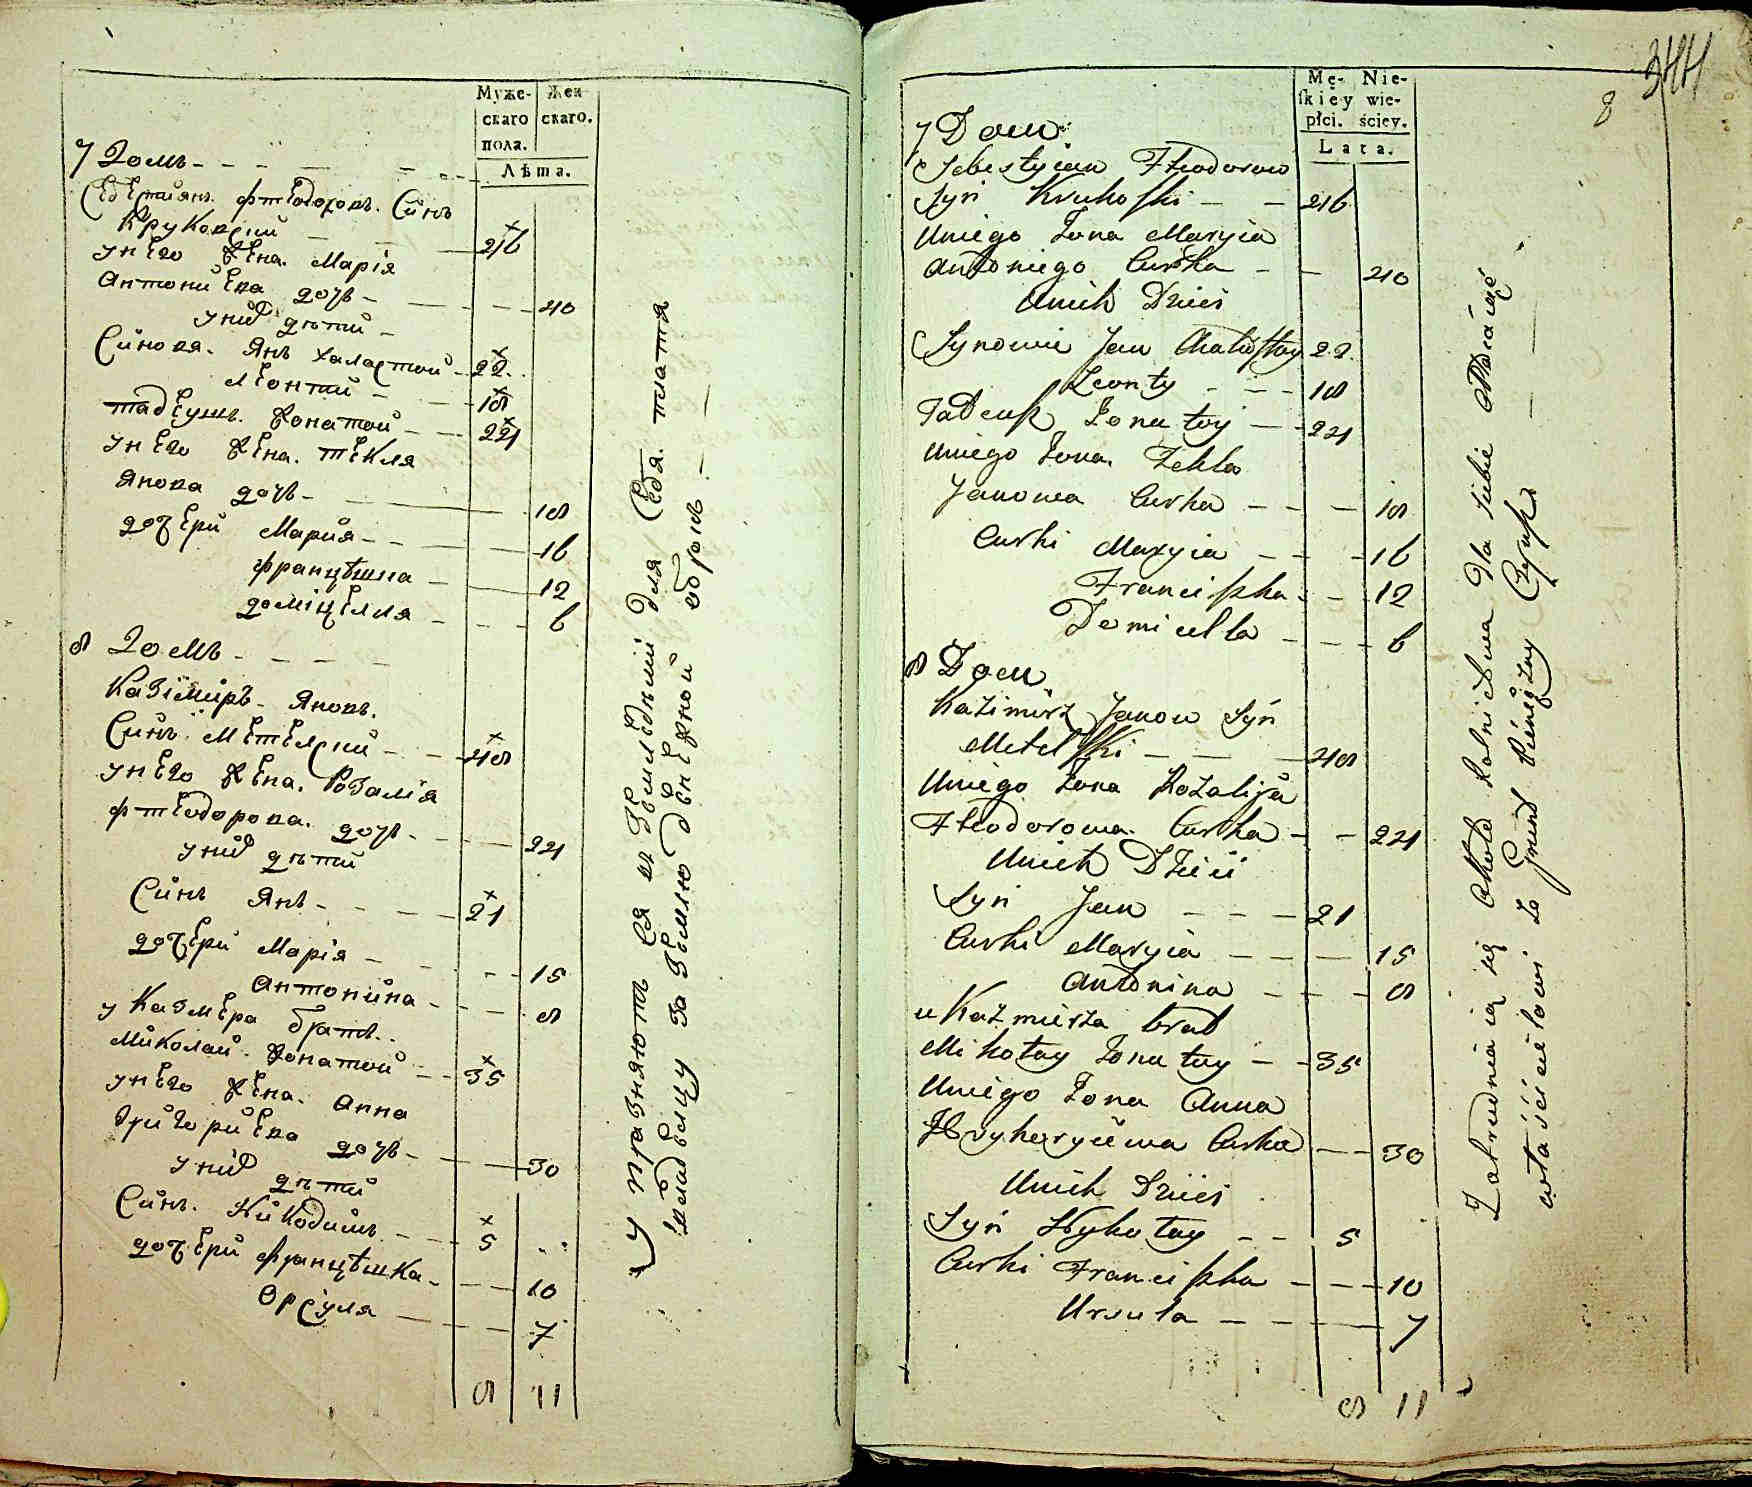 Муже-
скаго
пола.
Жен
скаго.
Лѣта.
7 Домъ
Себестйянъ Фтеодоровъ Сйнъ
Круковский 46
у него жена Марія
Антониева дочь 40
у них дѣтий
Сйновя Янъ Халастой 22
Леонтий 18
Тадеушъ жонатой 24
у него жена Текля
Янова дочь 18
дочери Мария 16
Францѣшка 12
Доміцелля 6
8 Домъ
Казїмиръ Яновъ
Сйнъ Метелский 48
у него жена Розалія
Фтеодорова дочь 24
у них дѣтий
Сйнъ Янъ 21
дочери Марія 15
Антонина 8
у Казмера братъ
Миколай жонатой 35
у него жена Анна
Григориева дочь 30
у них дѣтий
Сйнъ Никодимъ 5
дочери Францѣшка 10
Орсуля 7
8 11
Упразняютъ ся в земледѣлии для себя платя
владелцу за землю денежной оброкъ
344
8
Mę-
skięy
płci.
Nie-
wie-
ściey.
Lata.
7 Dom
Sebestyian Fteodorow
Syn Krukoſki 46
Uniego Zona Maryia
Antoniego Curka 40
Unich Dzieci
Synowie Jan Chałuſtay 22
Leonty 18
Tadeuſz Zonatỿ 24
Uniego Zona Tekla
Janowa Curka 18
Curki Maryia 16
Franciſzka 12
Domicella 6
8 Dom
Kazimirz Janow Syn
Metelſki 48
Uniego Zona Rozalija
Fteodorowa Curka 24
Unich Dzieci
Syn Jan 21
Curki Maryia 15
Antonina 8
u Kazmierza brat
Mikołay Zonatuy 35
Uniego Zona Anna
Hryhoryiewa Curka 30
Unich Dzieci
Syn Nykołay 5
Curki Franciſzka 10
Ursula 7
8 11
Zatrudniaią się około Rolnictwa dla siebie płacąc
właścicielowi za Grunt Pieniężny Czynſz